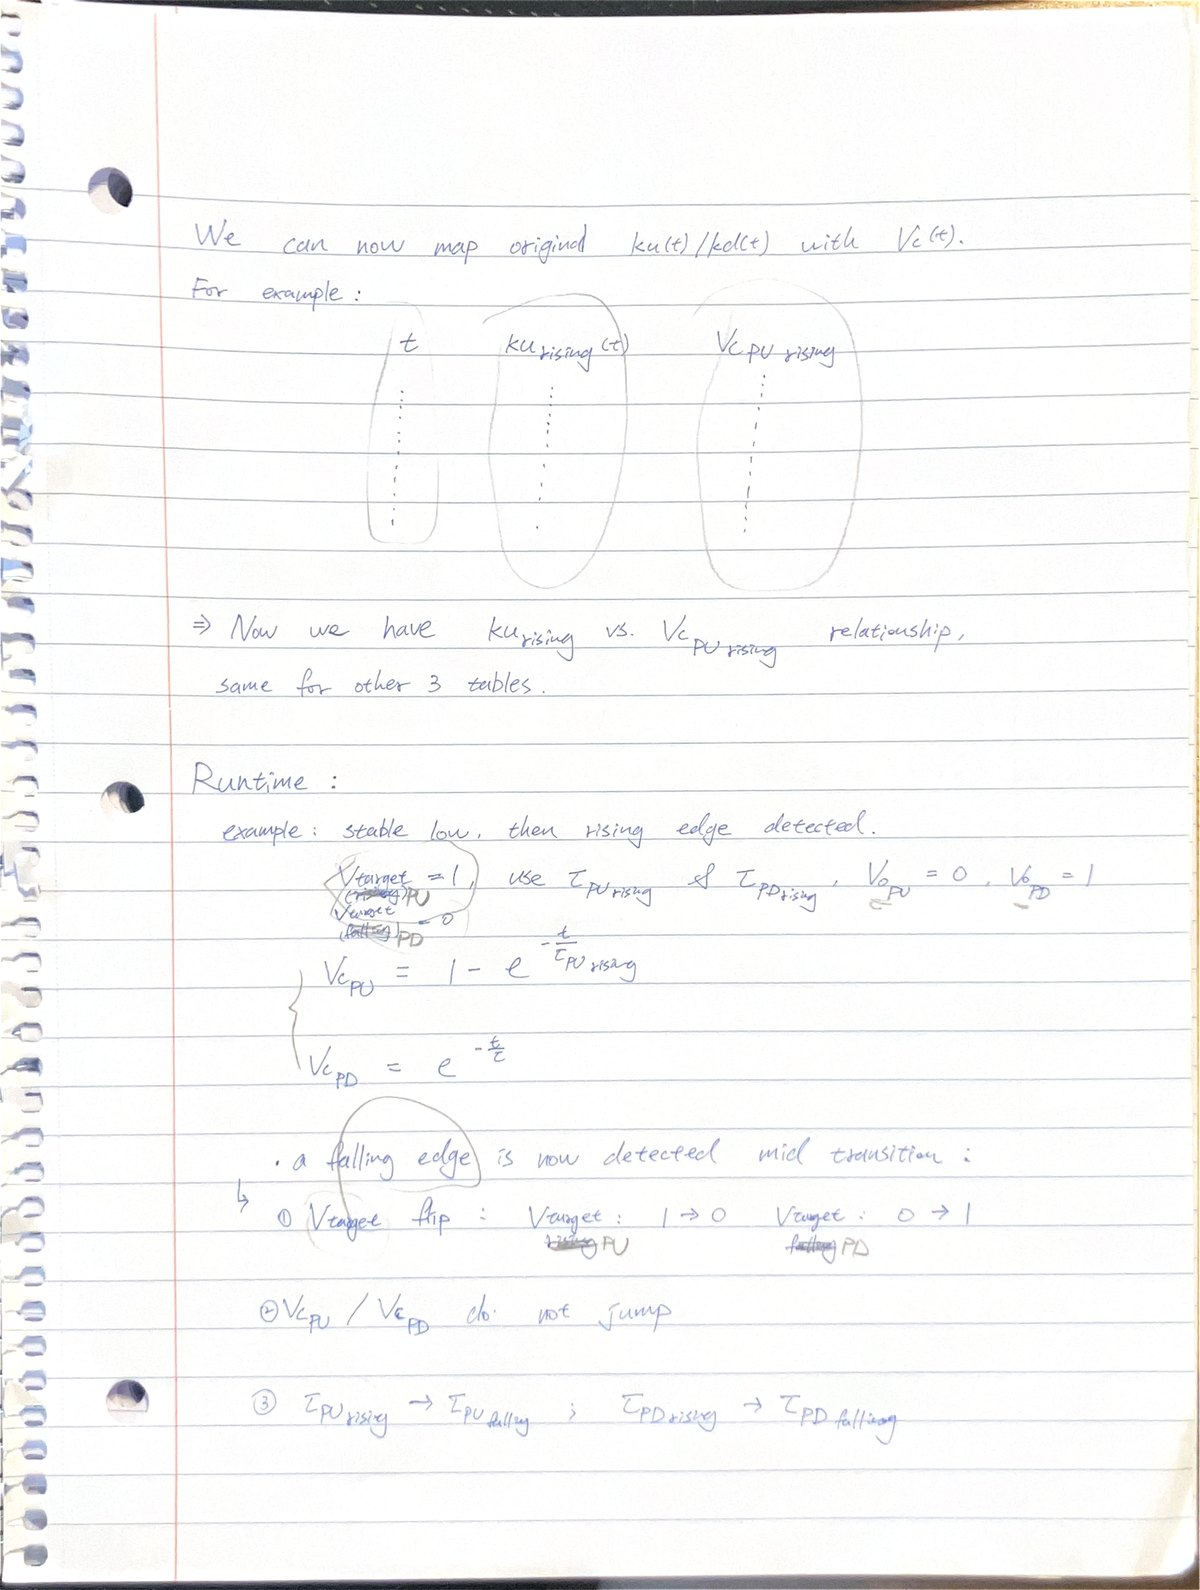 We can now map original ku(t)/kd(t) with Vc(t).
For example:
t ku rising (t) Vc PU rising
⇒ Now we have ku rising vs. Vc PU rising relationship,
same for other 3 tables.
Runtime:
example: stable low, then rising edge detected.
Vtarget PU = 1, use τ PU rising & τ PD rising, Vo PU = 0, Vo PD = 1
Vtarget PD = 0
Vc PU = 1 - e^(-t/τ PU rising)
Vc PD = e^(-t/τ)
· a falling edge is now detected mid transition:
↳ ① Vtarget flip: Vtarget PU: 1 → 0 Vtarget PD: 0 → 1
② Vc PU / Vc PD do not jump
③ τ PU rising → τ PU falling ; τ PD rising → τ PD falling